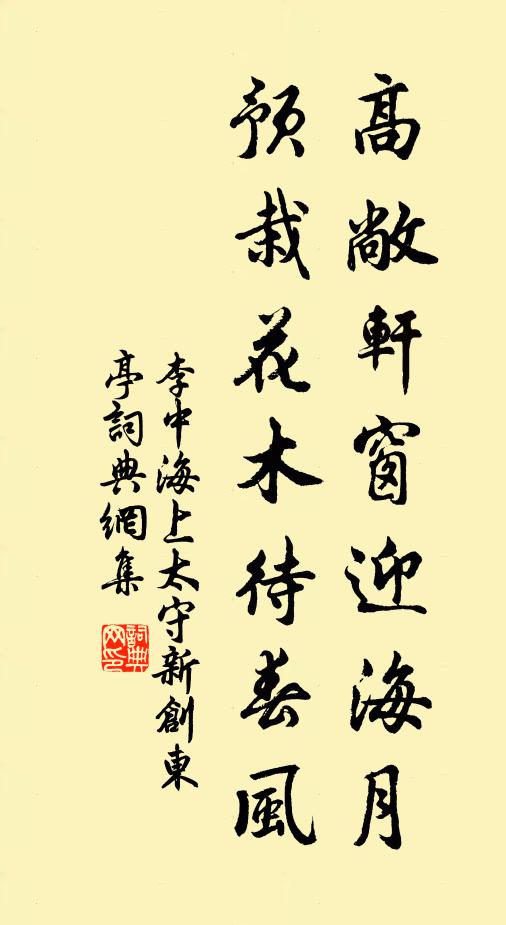 高敞軒窗迎海月
預栽花木待春風
李中海上太守新創東
亭詞典網集
詞典
网印